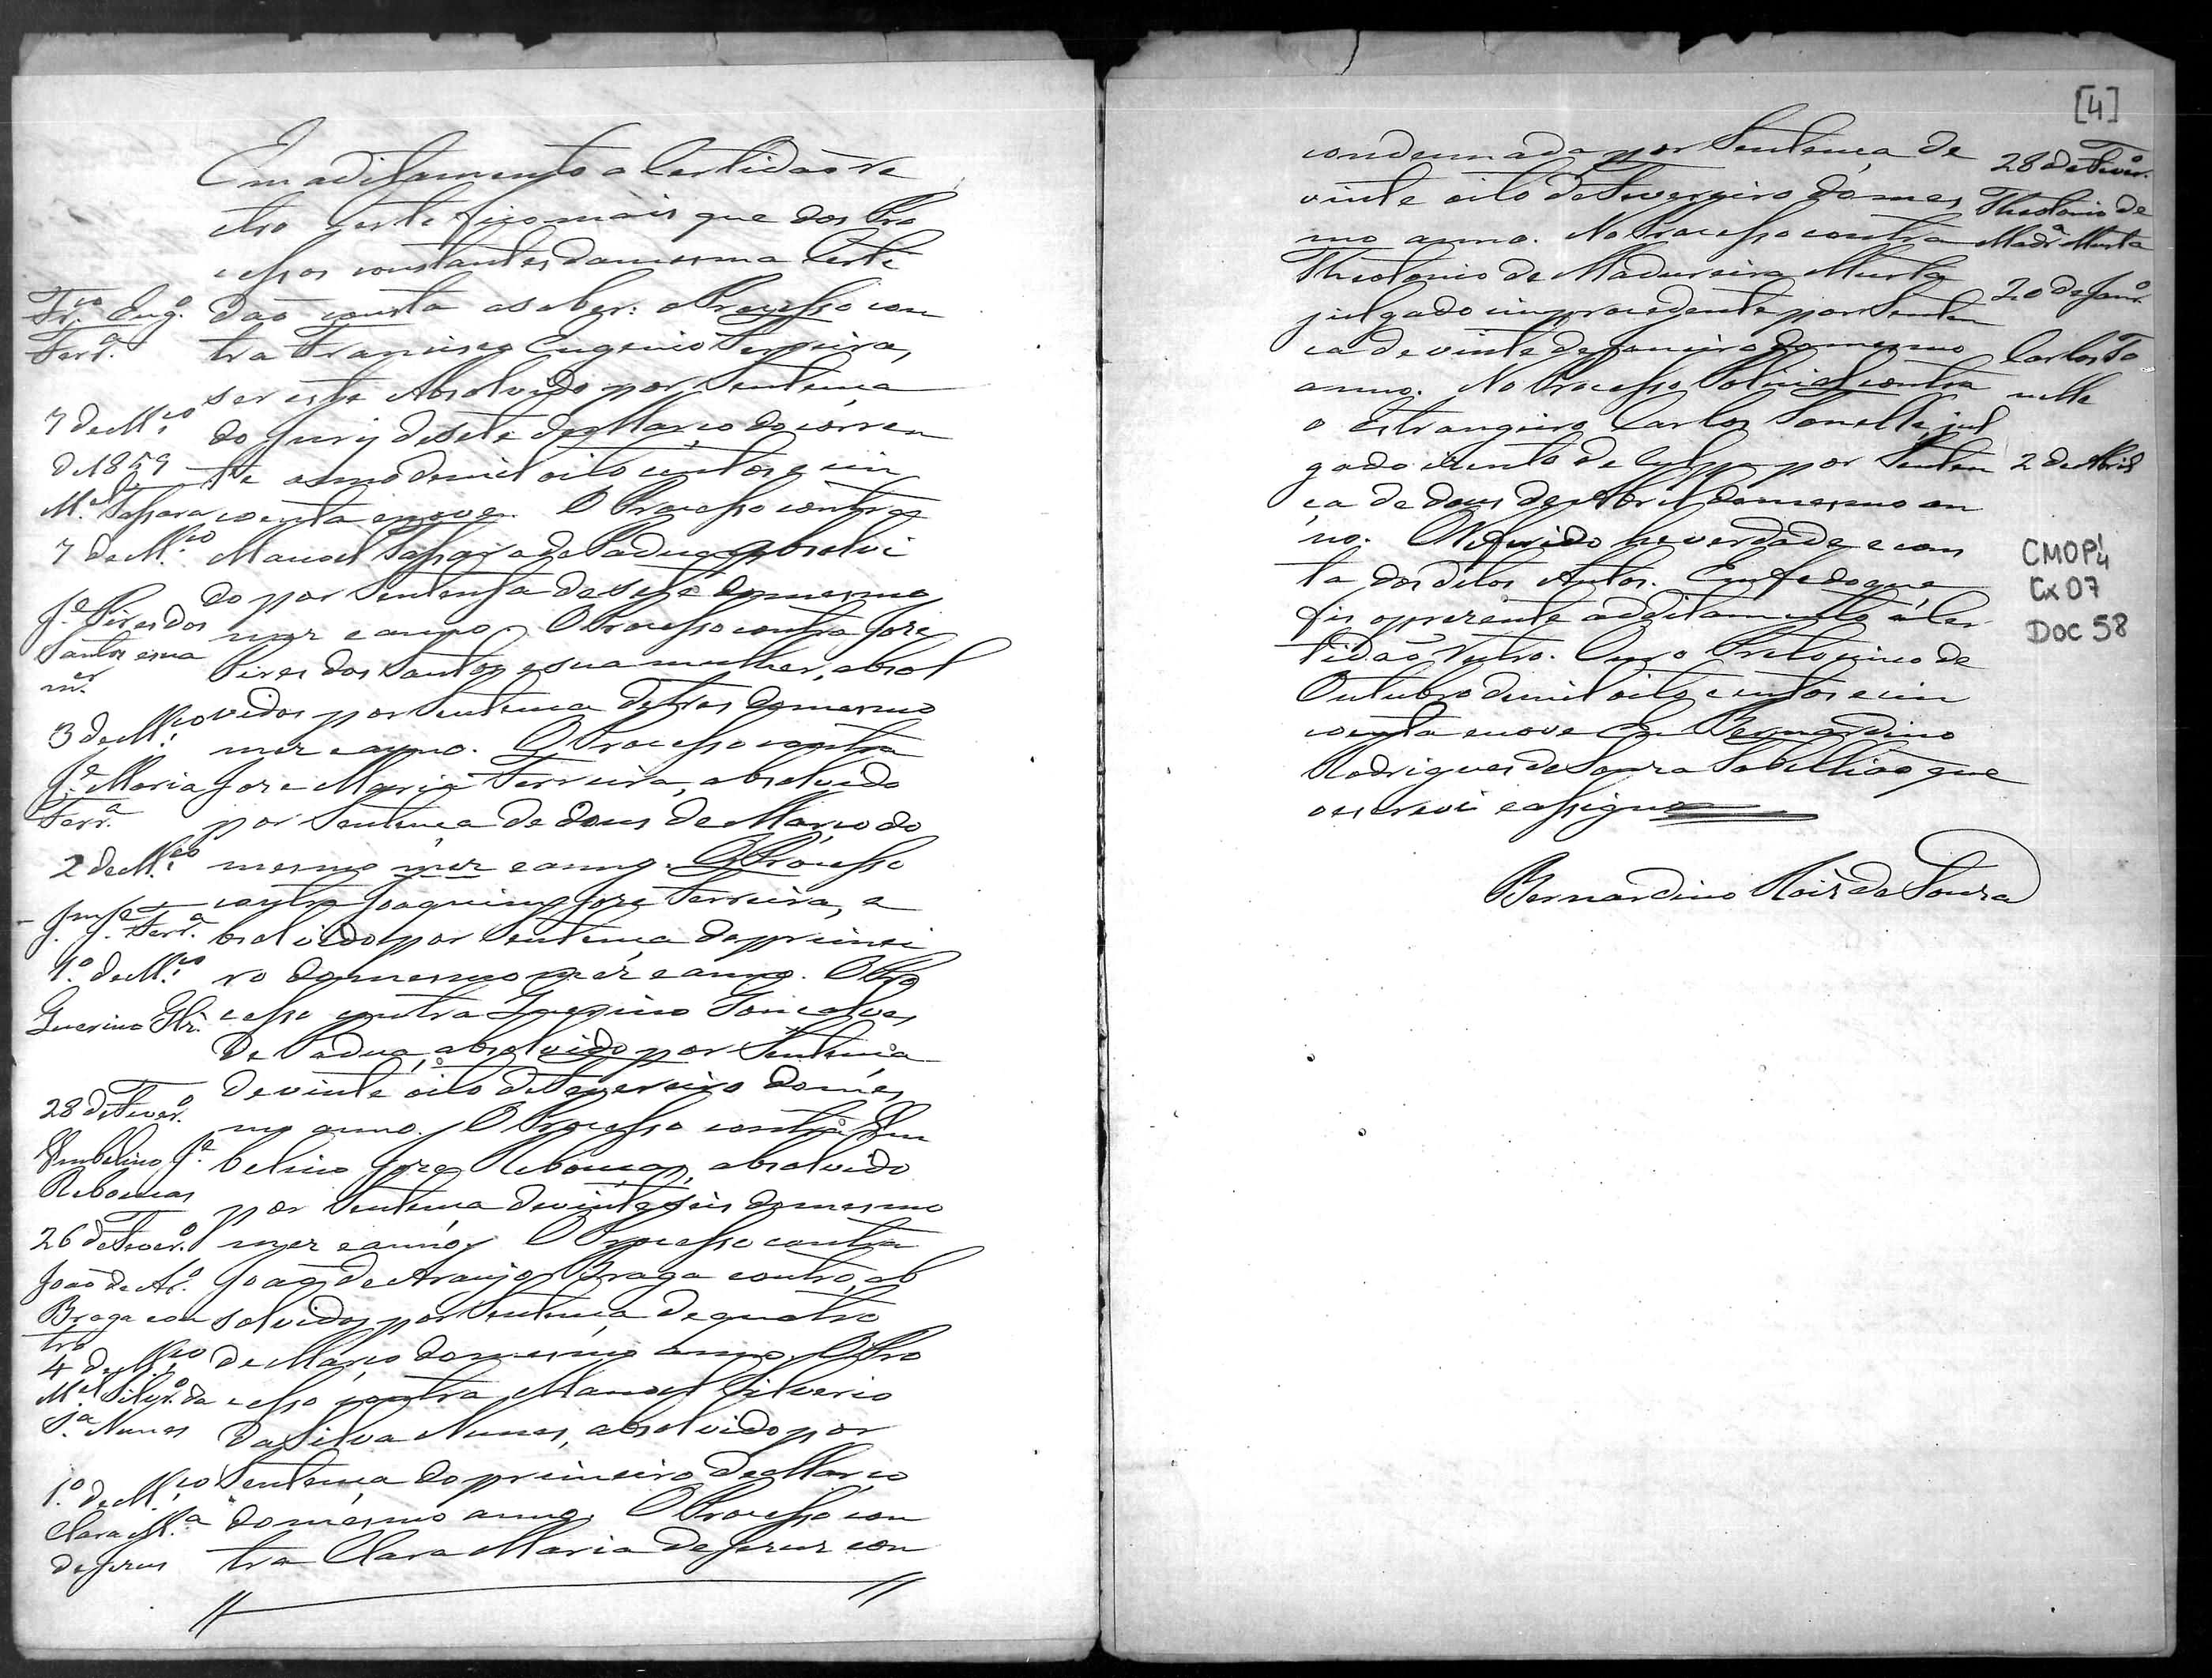 Em aditamento a Certidão re
tro Certefico mais que dos Pro
cessos constantes da mesma Certi
Fr.co Eug.o
Ferr.a
dão consta a saber: o Processo con
tra Francisco Eugenio Ferreira,
ser este Absolvido por Sentença
7 de M.ço
de 1859
do Jury de sete de Março do corren
te anno de mil oito centos e cin
M.el Passara
coenta e nove. O Processo contra
7 de M.ço
Manoel de Padua Absolvi
do por Sentensa de sete do mesmo
J.e Pires dos
Santos e sua
m.er
mez e anno. O Processo contra Joze
Pires dos Santos e sua mulher, absol
3 de M.ço
vidos por Sentença de tres do mesmo
mez e anno. O Processo contra
J.e Maria
Ferr.a
Joze Maria Ferreira, absolvido
por Sentença de dous de Março do
2 de M.ço
mesmo mez e anno. O Processo
J.m J.e Ferr.a
contra Joaquim Joze Ferreira, a
bsolvido por Sentença do primei
1.o de M.ço
ro do mesmo mez e anno. O Pro
Guerino Glz.
cesso contra Guerino Gonçalves
de Padua, absolvido por Sentença
28 de Fever.o
de vinte oito de Fevereiro do mes
mo anno. O Processo contra Um
Umbelino J.e
Rebouças
belino Joze Rebouças, absolvido
por Sentença de vinte seis do mesmo
26 de Fever.o
mez e anno. O Processo contra
João de Ar.o
Braga e ou
tro
João de Araujo Braga e outro, ab
solvidos por Sentença de quatro
4 de M.ço
de Março do mesmo anno. O Pro
M.el Silv.o da
S.a Nunes
cesso contra Manoel Silverio
da Silva Nunes, absolvido por
1.o de M.ço
Sentença do primeiro de Março
Clara M.a
de Jezus
do mesmo anno. O Processo con
tra Clara Maria de Jezus con
[4]
condemnada por Sentença de
28 de Fever.o
vinte oito de Fevereiro do mes
Theotonio de
Madr.a Murta
mo anno. No Processo contra
Theotonio de Madureira Murta
20 de Jan.o
julgado improcedente por Senten
ca de vinte de Janeiro do mesmo
Carlos To
nelle
anno. No Processo Policial contra
o Estrangeiro Carlos Tonelle, jul
2 de Abril
gado izento de culpa por Senten
ça de dous de Abril do mesmo an
no. O Referido he verdade e cons
ta dos ditos Autos. Em fe do que
fis o prezente additamento á Cer
tidão retro. Ouro Preto cinco de
Outubro de mil oito centos e cin
coenta e nove Eu Bernardino
Rodrigues de Souza Tabellião que
o escrevi e assigno
Bernardino Roiz de Souza
CMOP 1/4
Cx 07
Doc 58